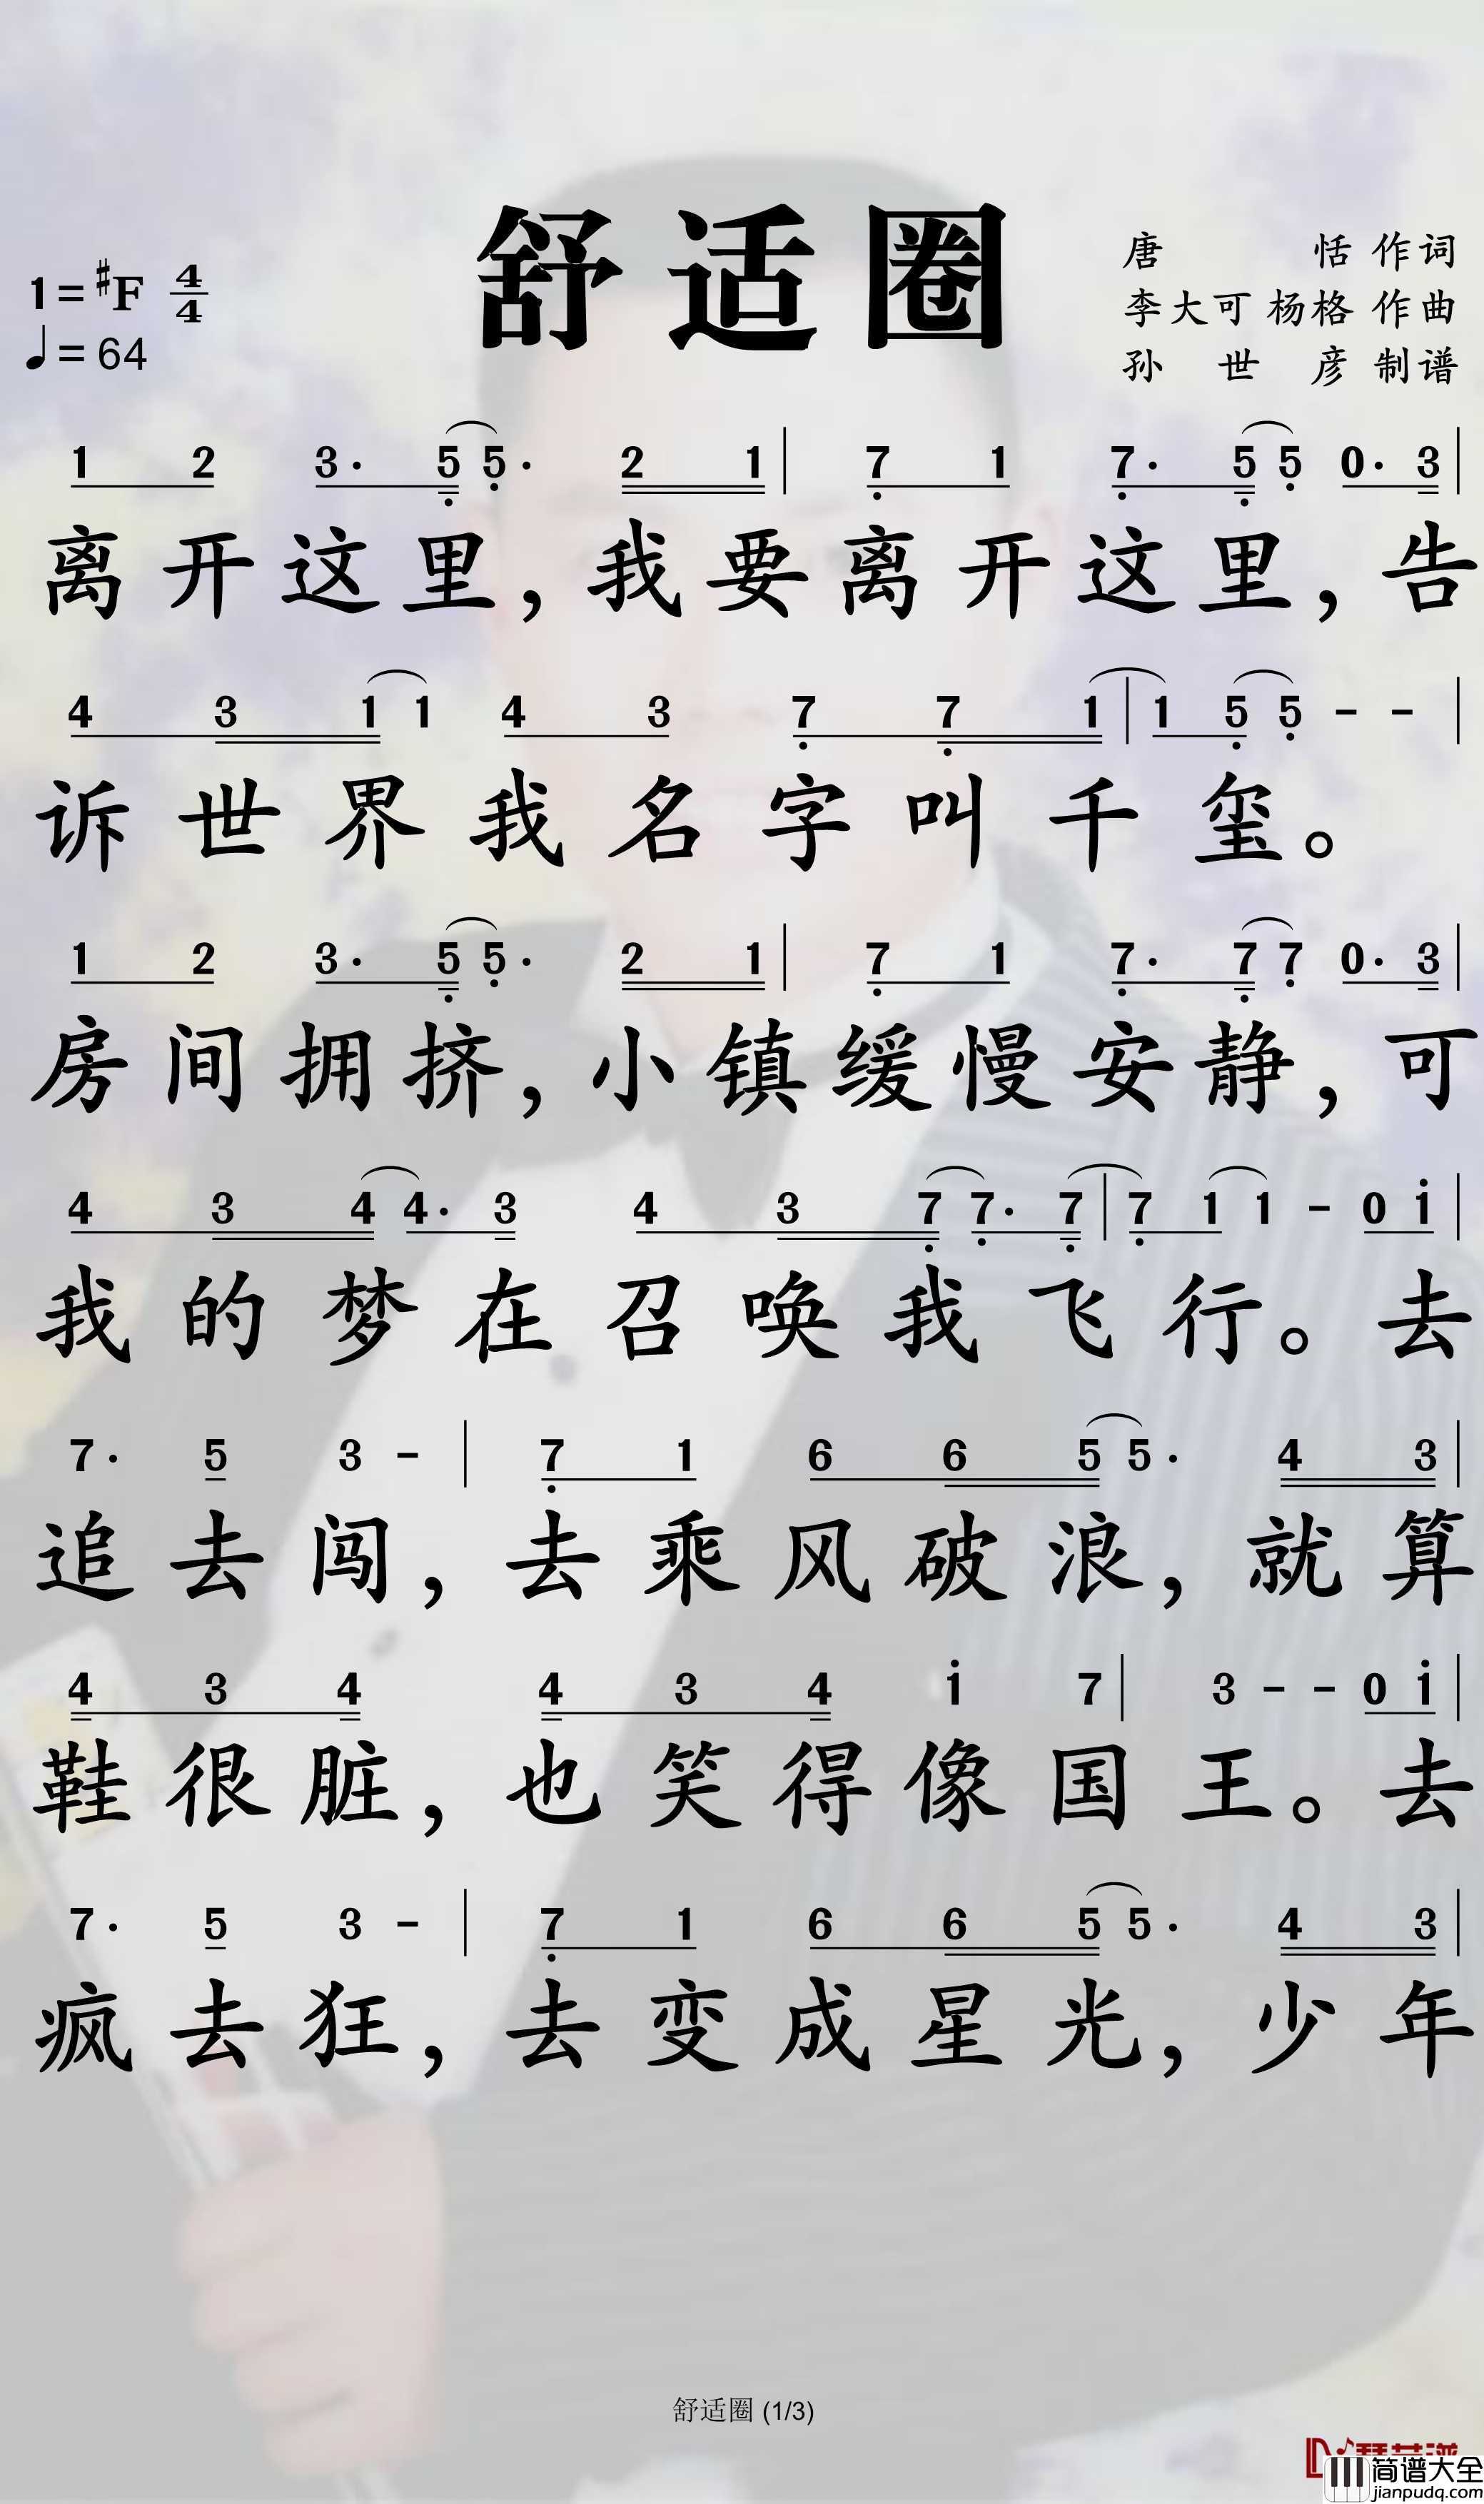 舒适圈
1=♯F 4/4
♩=64
唐 恬 作词
李大可 杨格 作曲
孙 世 彦 制谱
1 2 3· 5 5· 2 1 | 7 1 7· 5 5 0· 3 |
离开这里，我要离开这里，告
4 3 1 1 4 3 7 7 1 | 1 5 5 - - |
诉世界我名字叫千玺。
1 2 3· 5 5· 2 1 | 7 1 7· 7 7 0· 3 |
房间拥挤，小镇缓慢安静，可
4 3 4 4· 3 4 3 7 7· 7 | 7 1 1 - 0 1 |
我的梦在召唤我飞行。去
7· 5 3 - | 7 1 6 6 5 5· 4 3 |
追去闯，去乘风破浪，就算
4 3 4 4 3 4 1 7 | 3 - - 0 1 |
鞋很脏，也笑得像国王。去
7· 5 3 - | 7 1 6 6 5 5· 4 3 |
疯去狂，去变成星光，少年
舒适圈 (1/3)
简谱大全
jianpudq.com